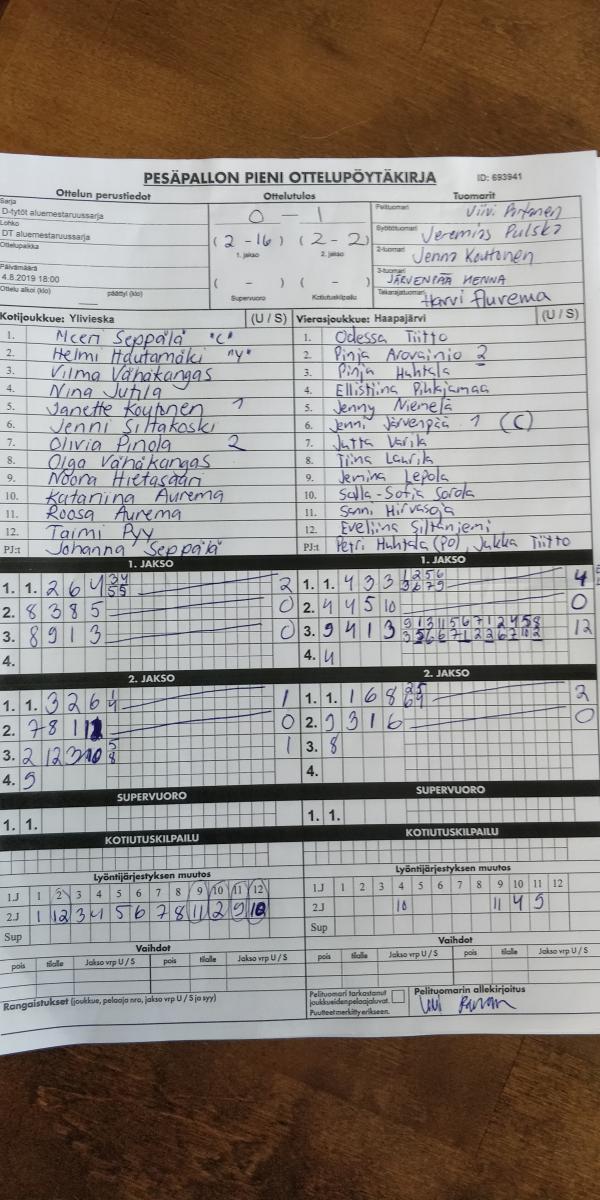 PESÄPALLON PIENI OTTELUPÖYTÄKIRJA ID: 693941
Ottelun perustiedot Ottelutulos Tuomarit
Sarja
D-tytöt aluemestaruussarja
Lohko
DT aluemestaruussarja
Ottelupaikka
Päivämäärä
4.8.2019 18:00
Ottelu alkoi (klo) päättyi (klo)
0 - 1
(2 - 16) (2 - 2)
1. jakso 2. jakso
( - ) ( - )
Supervuoro Kotiutuskilpailu
Pelituomari Viivi
Syöttötuomari Jeremias Pulska
2-tuomari Jenna Koutonen
3-tuomari JÄRVENPÄÄ HENNA
Takarajatuomari Harri Aurema
Kotijoukkue: Ylivieska (U / S) Vierasjoukkue: Haapajärvi (U / S)
1. Meeri Seppälä "C" 1. Odessa Tiitto
2. Helmi Hautamäki "V" 2. Pinja Arovainio 2
3. Vilma Vähäkangas 3. Pinja Huhtala
4. Nina Jutila 4. Ellistiina Pihlajamaa
5. Janette Koutonen 1 5. Jenny Niemelä
6. Jenni Siltakoski 6. Jenni Järvenpää 1 (C)
7. Olivia Pinola 2 7. Jutta Varila
8. Olga Vähäkangas 8. Tiina Laurila
9. Noora Hietasaari 9. Jemina Lepola
10. Katariina Aurema 10. Salla-Sofia Sorola
11. Roosa Aurema 11. Sanni Hirvasoja
12. Taimi Pyy 12. Eveliina Siltaniemi
PJ:t Johanna Seppälä PJ:t Petri Huhtala (PO), Jukka Tiitto
1. JAKSO 1. JAKSO
1. 1. 2 6 4 34 55 2 1. 1. 4 3 3 1256 3679 4
2. 8 3 8 5 0 2. 4 4 5 10 0
3. 8 9 1 3 0 3. 9 4 1 3 12
4. 4. 4
2. JAKSO 2. JAKSO
1. 1. 3 2 6 1 4 1 1. 1. 1 6 8 2
2. 7 8 1 0 2. 9 3 1 6 0
3. 2 12 3 10 5 8 1 3. 8
4. 9 4.
SUPERVUORO SUPERVUORO
1. 1. 1. 1.
KOTIUTUSKILPAILU KOTIUTUSKILPAILU
Lyöntijärjestyksen muutos Lyöntijärjestyksen muutos
1.J 1 2 3 4 5 6 7 8 9 10 11 12 1.J 1 2 3 4 5 6 7 8 9 10 11 12
2.J 1 12 3 4 5 6 7 8 11 2 9 10 2.J 10 11 4 9
Sup Sup
Vaihdot Vaihdot
pois tilalle Jakso vrp U / S pois tilalle Jakso vrp U / S pois tilalle Jakso vrp U / S pois tilalle Jakso vrp U / S
Rangaistukset (joukkue, pelaaja nro, jakso vrp U / S ja syy)
Pelituomari tarkastanut
joukkueiden pelaajaluvat.
Puutteet merkitty erikseen.
Pelituomarin allekirjoitus